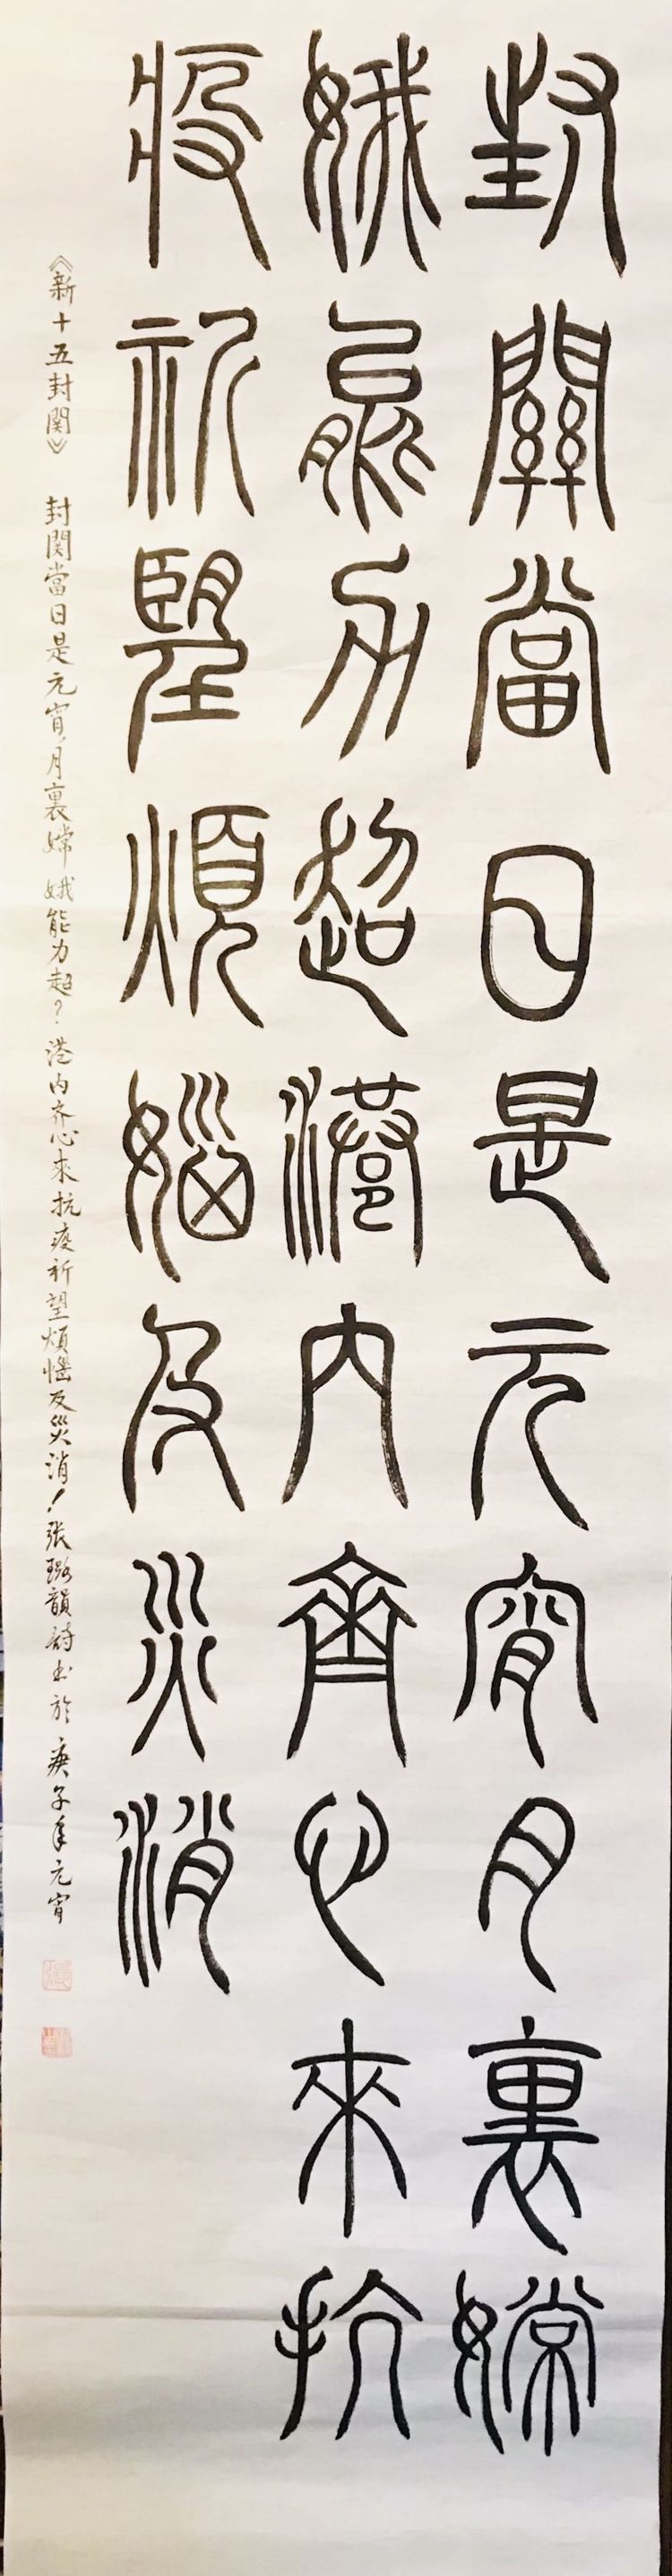 封關當日是元宵月裏嫦
娥能力超港內齊心來抗
疫祈望煩惱及災消
《新十五封関》 封関當日是元宵,月裏嫦娥能力超?港内齐心來抗疫祈望煩惱及災消!張璐韻詩书於庚子年元宵